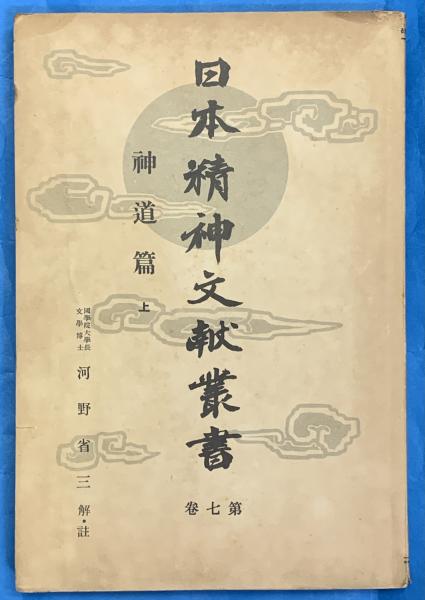 日本精神文献叢書
第七卷
神道篇 上
國學院大學長
文學博士
河野省三 解・註